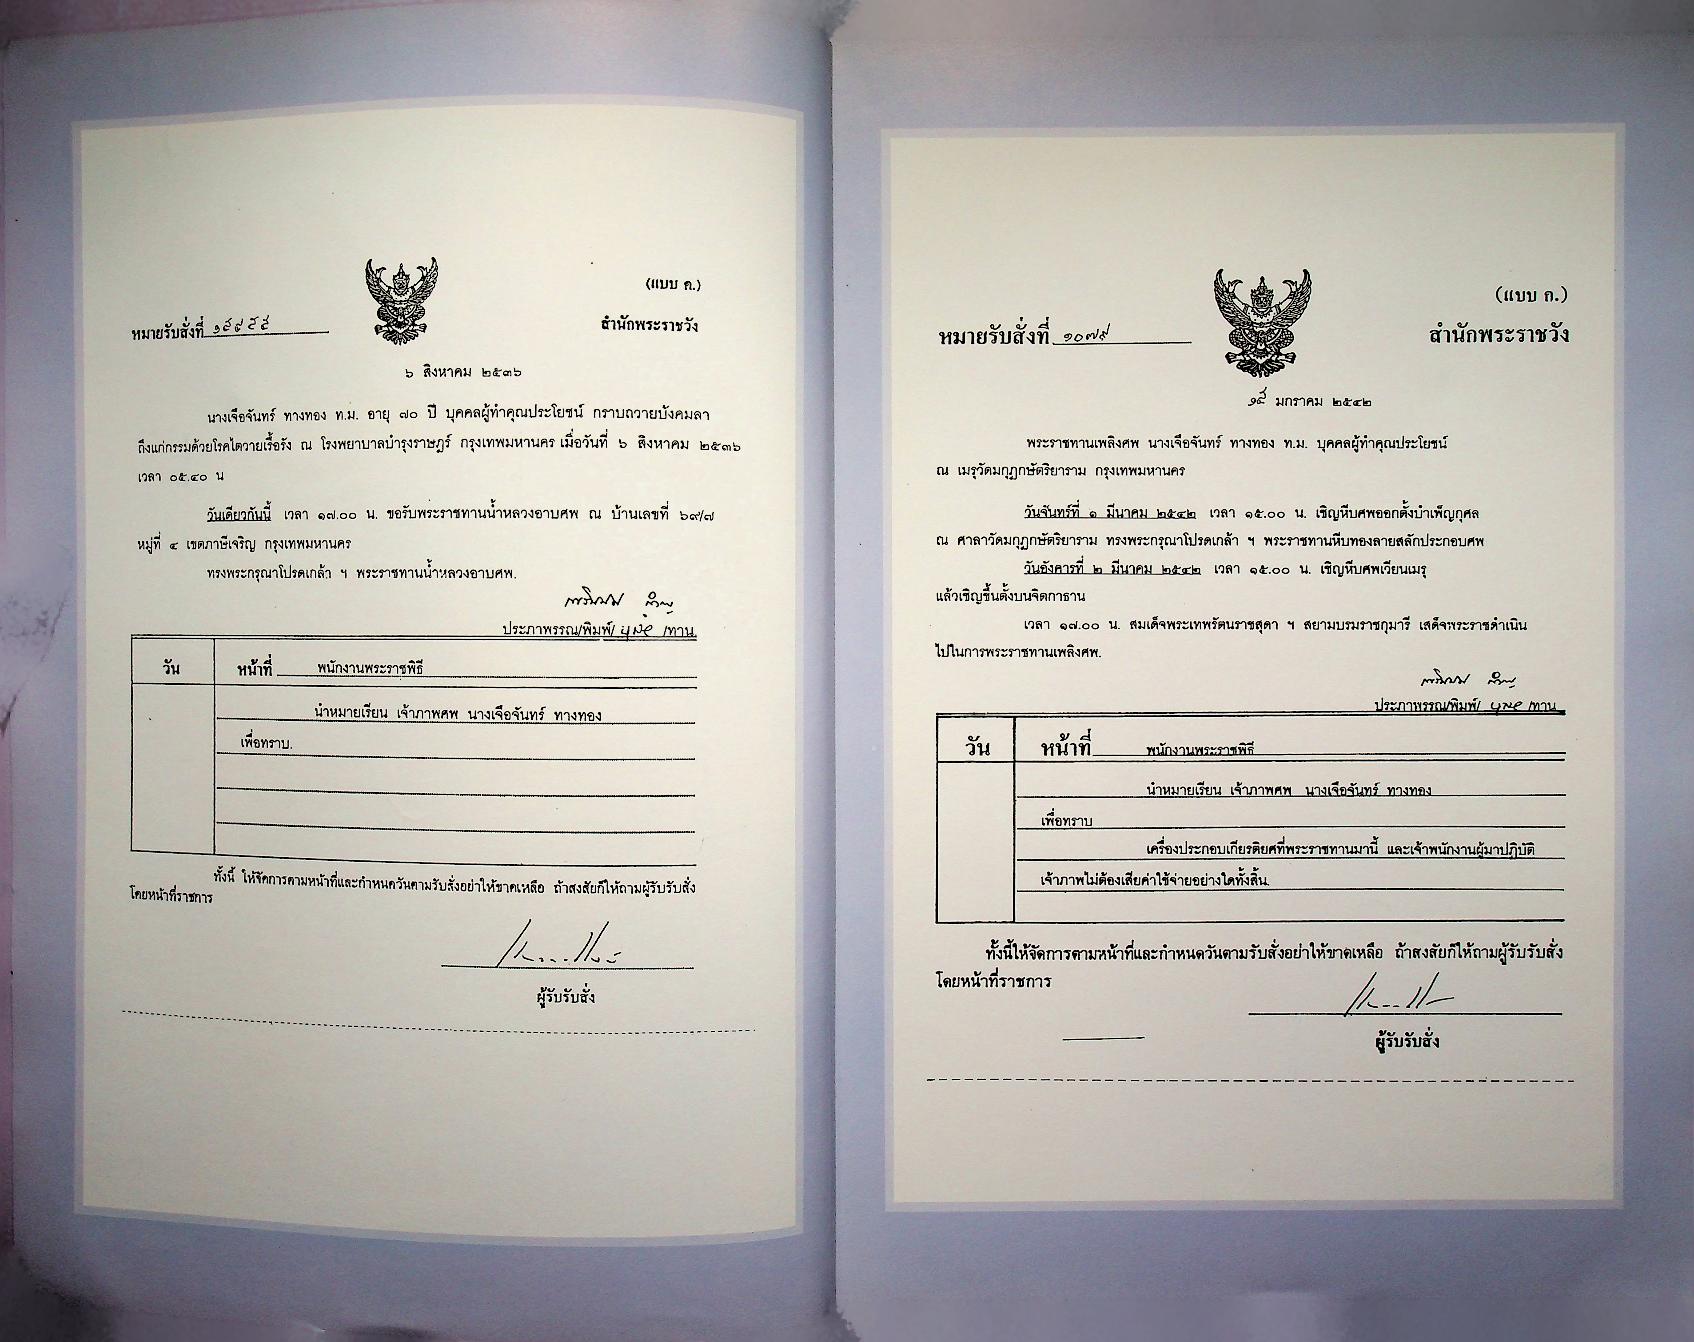 (แบบ ค.)
หมายรับสั่งที่ ๑๕๙๕๕
สำนักพระราชวัง
๖ สิงหาคม ๒๕๓๖
นางเจือจันทร์ ทางทอง ท.ม. อายุ ๗๐ ปี บุคคลผู้ทำคุณประโยชน์ กราบถวายบังคมลา
ถึงแก่กรรมด้วยโรคไตวายเรื้อรัง ณ โรงพยาบาลบำรุงราษฎร์ กรุงเทพมหานคร เมื่อวันที่ ๖ สิงหาคม ๒๕๓๖
เวลา ๐๕.๔๐ น
วันเดียวกันนี้ เวลา ๑๗.๐๐ น. ขอรับพระราชทานน้ำหลวงอาบศพ ณ บ้านเลขที่ ๖๙/๗
หมู่ที่ ๔ เขตภาษีเจริญ กรุงเทพมหานคร
ทรงพระกรุณาโปรดเกล้า ฯ พระราชทานน้ำหลวงอาบศพ.
ประภาพรรณ/พิมพ์/ /ทาน.
วัน หน้าที่ พนักงานพระราชพิธี
นำหมายเรียน เจ้าภาพศพ นางเจือจันทร์ ทางทอง
เพื่อทราบ.
ทั้งนี้ ให้จัดการตามหน้าที่และกำหนดวันตามรับสั่งอย่าให้ขาดเหลือ ถ้าสงสัยก็ให้ถามผู้รับรับสั่ง
โดยหน้าที่ราชการ
ผู้รับรับสั่ง
(แบบ ก.)
หมายรับสั่งที่ ๑๐๗๙
สำนักพระราชวัง
๑๕ มกราคม ๒๕๔๒
พระราชทานเพลิงศพ นางเจือจันทร์ ทางทอง ท.ม. บุคคลผู้ทำคุณประโยชน์
ณ เมรุวัดมกุฏกษัตริยาราม กรุงเทพมหานคร
วันจันทร์ที่ ๑ มีนาคม ๒๕๔๒ เวลา ๑๕.๐๐ น. เชิญหีบศพออกตั้งบำเพ็ญกุศล
ณ ศาลาวัดมกุฏกษัตริยาราม ทรงพระกรุณาโปรดเกล้า ฯ พระราชทานหีบทองลายสลักประกอบศพ
วันอังคารที่ ๒ มีนาคม ๒๕๔๒ เวลา ๑๕.๐๐ น. เชิญหีบศพเวียนเมรุ
แล้วเชิญขึ้นตั้งบนจิตกาธาน
เวลา ๑๗.๐๐ น. สมเด็จพระเทพรัตนราชสุดา ฯ สยามบรมราชกุมารี เสด็จพระราชดำเนิน
ไปในการพระราชทานเพลิงศพ.
ประภาพรรณ/พิมพ์/ /ทาน
วัน หน้าที่ พนักงานพระราชพิธี
นำหมายเรียน เจ้าภาพศพ นางเจือจันทร์ ทางทอง
เพื่อทราบ
เครื่องประกอบเกียรติยศที่พระราชทานมานี้ และเจ้าพนักงานผู้มาปฏิบัติ
เจ้าภาพไม่ต้องเสียค่าใช้จ่ายอย่างใดทั้งสิ้น.
ทั้งนี้ให้จัดการตามหน้าที่และกำหนดวันตามรับสั่งอย่าให้ขาดเหลือ ถ้าสงสัยก็ให้ถามผู้รับรับสั่ง
โดยหน้าที่ราชการ
ผู้รับรับสั่ง